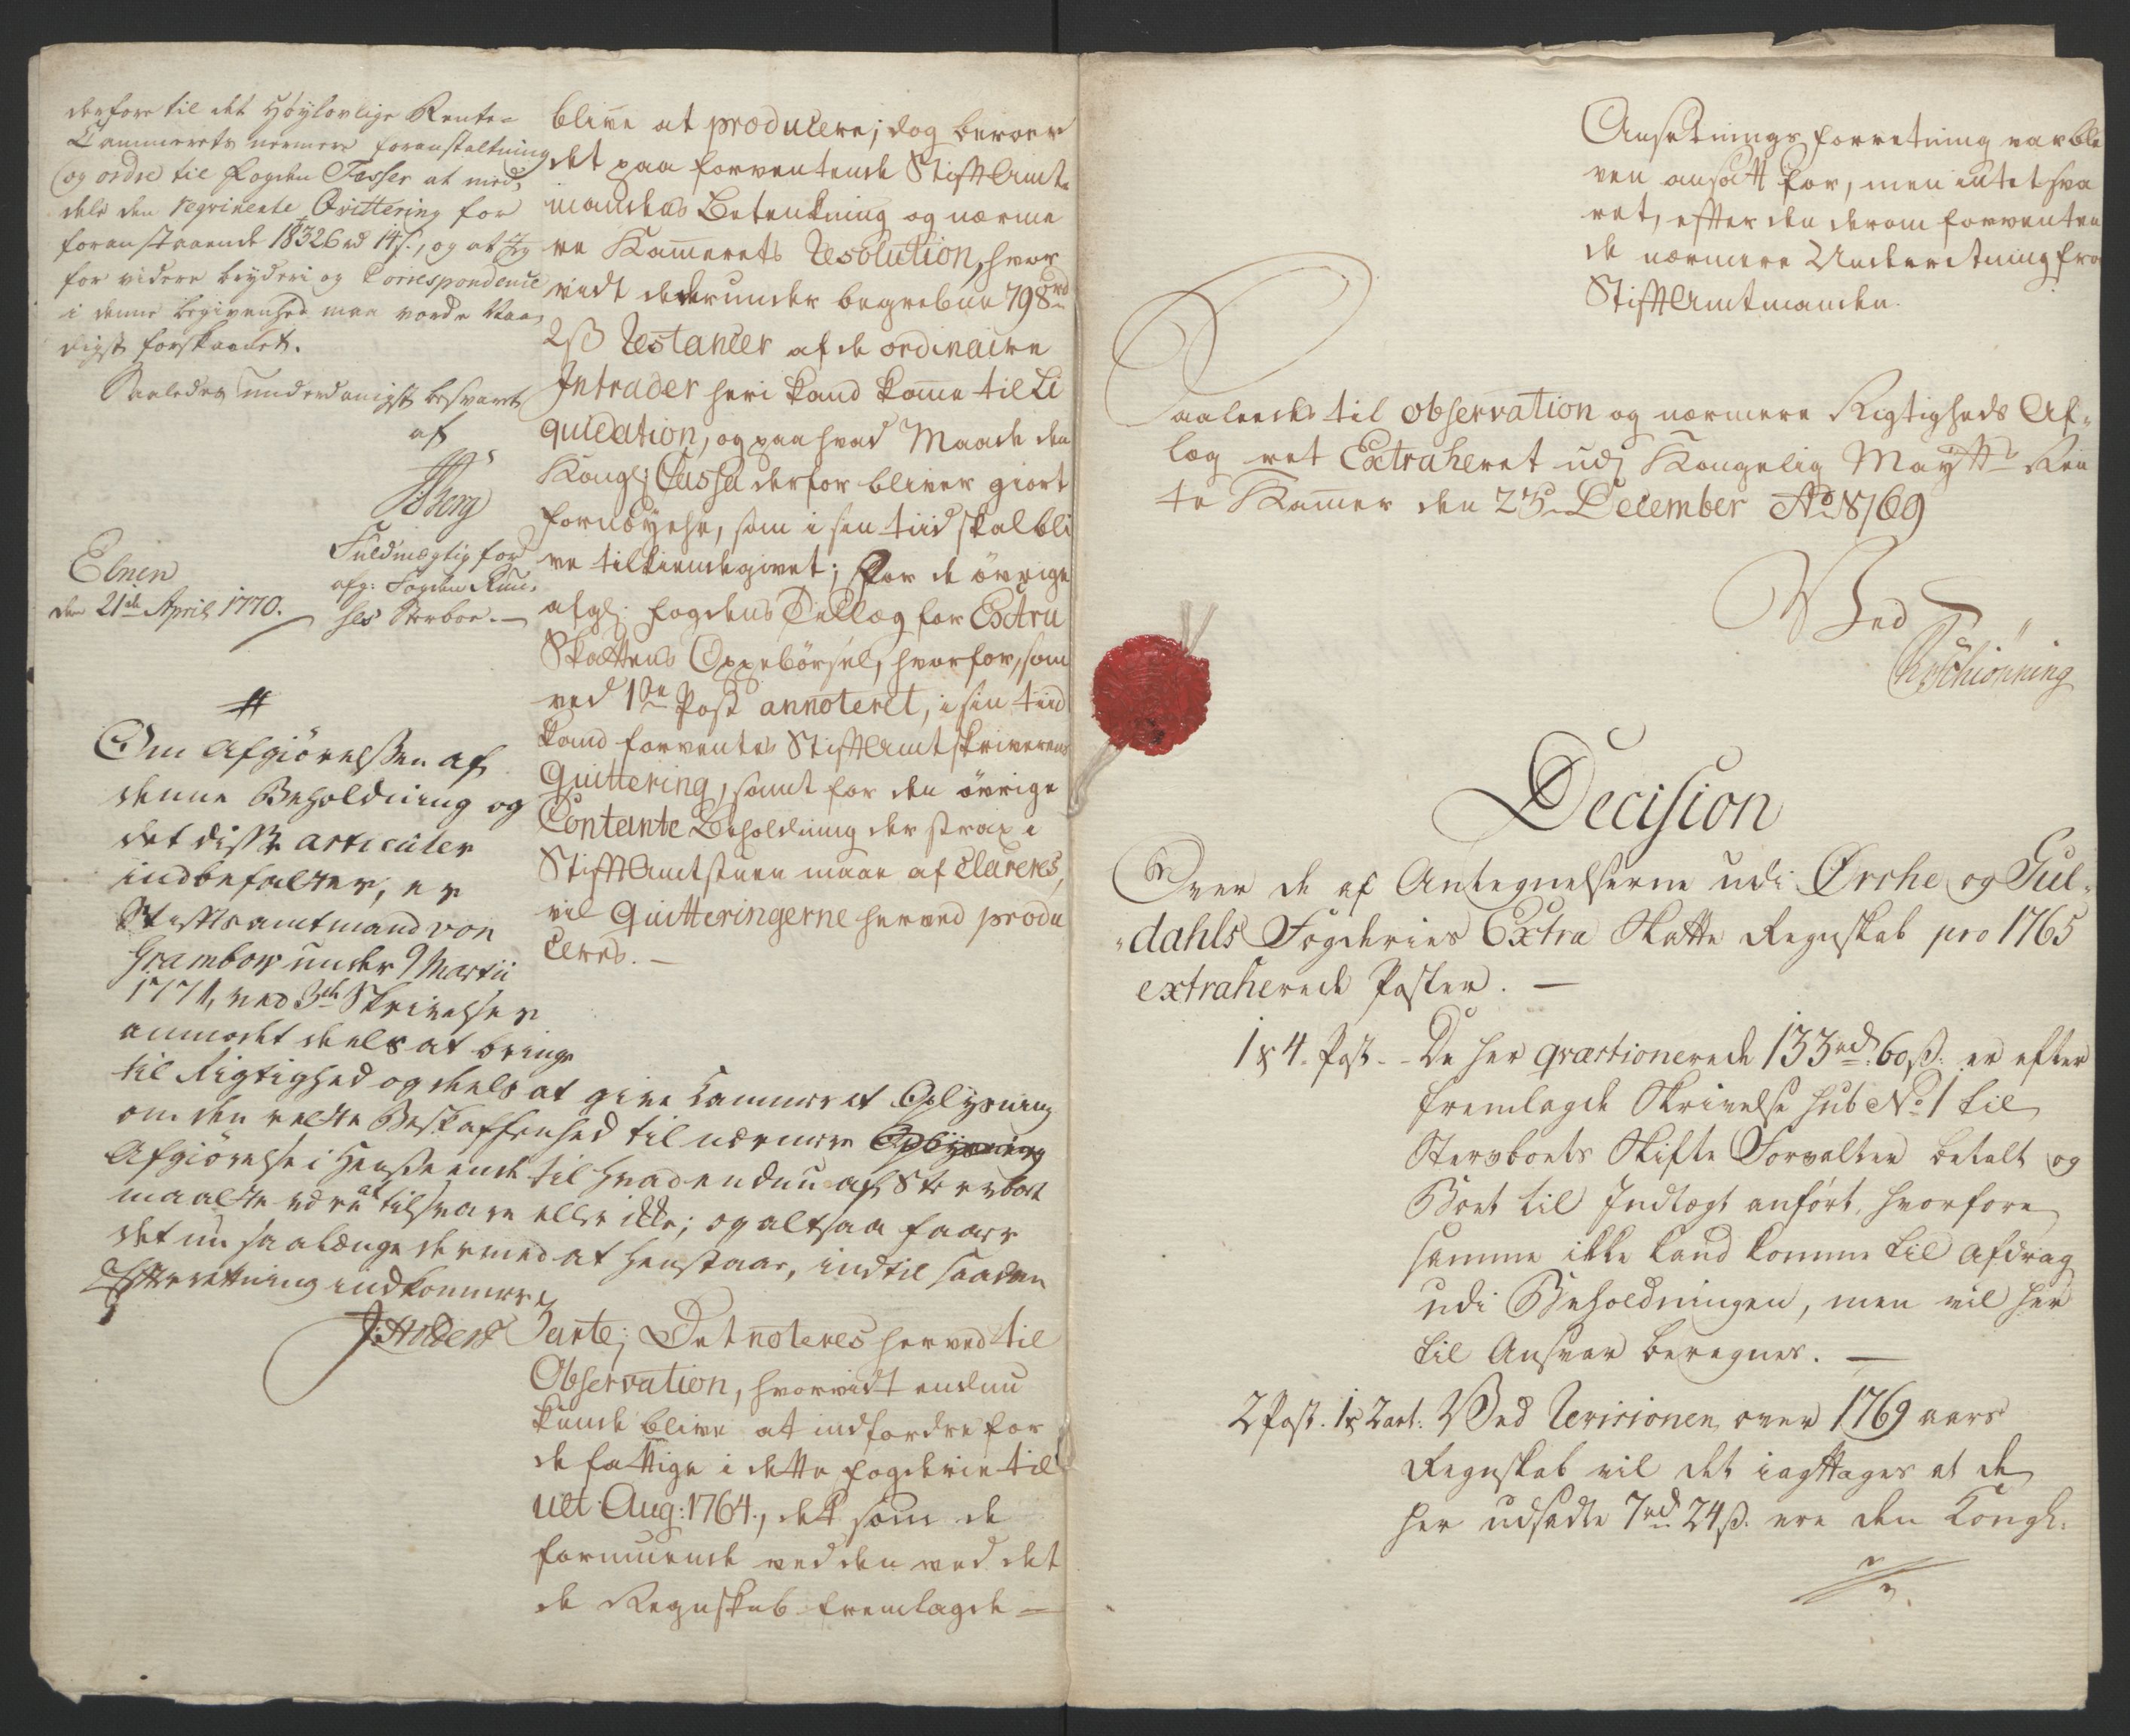 derfore til det Høylovlige Rente-
Cammerets nermere foranstaltning
og ordre til Fogden Fasser at med-
dele den reqvirerte Qvittering for
foranstaaende 18326 rd 14 s., og at Jeg
for videre bryderi og Correspondence
i denne begivenhed maa vorde Naa-
digst forskaanet.
Saaledes underdanigst besvaret
af
Berg
Fuldmægtig for
afg: Fogden
Sterboe.
den 21de April 1770.
#
Om Afgiørelssen af
denne Beholdning og
det disse articuler
indbefatter, er
Stiftsamtmand von
Grambow under 9 Martii
1771, ved Skrivelse
anmodet deels at bringe
til Rigtighed og deels at give Cammeret Oplysning
om den rette Beskaffenhed til nermere Oplysning
Afgiørelse i Henseende til hvad endnu af Sterboet
maatte være at tilsvare eller ikke; og altsaa faaer
det nu saalænge dermed at henstaae, indtil saadan
Efterretning indkommer.
J: Holderst
blive at producere; dog beroer
det paa forventende StiftAmt-
mandens Betenkning og nærme
re Kamerets Resolution, hvor
vidt de derunder begrebne 798 rd
2 ß Restancer af de ordinaire
Intrader heri kand kome til Li
quidation, og paa hvad Maade den
Kongl: Cassa derfor bliver giort
fornøyet, som i sin tiid skal bli
ve tilkiendegivet; For de øvrige
afgl: Fogdens Tillæg for Extra
Skattens Oppebørsel, hvorfor, som
ved 1te Post annoteret, i sin tiid
kand forventes StiftAmtskriverens
Quittering, samt for den øvrige
Contante Beholdning der strax i
StiftAmtstuen maae af clareres,
vil Quitteringerne herved produ
ceres. —
3 arte; Det noteres herved til
Observation, hvorvidt endnu
kunde blive at indfordre for
de fattige i dette fogderie til
ult: Aug: 1764., det som de
formuende ved den ved det
de Regnskab fremlagde —
Ansetnings forretning var ble
ven ansatt for, men intet sva
ret, efter den derom forventen
de nærmere Underretning fra
StiftAmtmanden.
Saaledes til observation og nærmere Rigtigheds Af-
læg ret Extraheret udj Kongelig Maytts Ren
te Kamer den 23de December Ao 1769
Ved
Schiønning
Decision
Over de af Antegnelserne udi Ørche og Gul-
dahls Fogderies Extra Skatte Regnskab pro 1765
extraherede Poster. —
1 & 4. Post. - De her qvæstionerede 133 rd. 60 ß. er efter
fremlagde Skrivelse sub No 1 til
Stervboets Skifte Forvalter betalt og
Boet til Indtægt anført, hvorfore
samme ikke kand komme til afdrag
udi Beholdningen, men vil her
til Ansvar beregnes. —
2 Post. 1 & 2 art: Ved Revisionen over 1769 aars
Regnskab vil det iagttages at de
her udsadte 7 rd 24 ß. ere den Kongl: